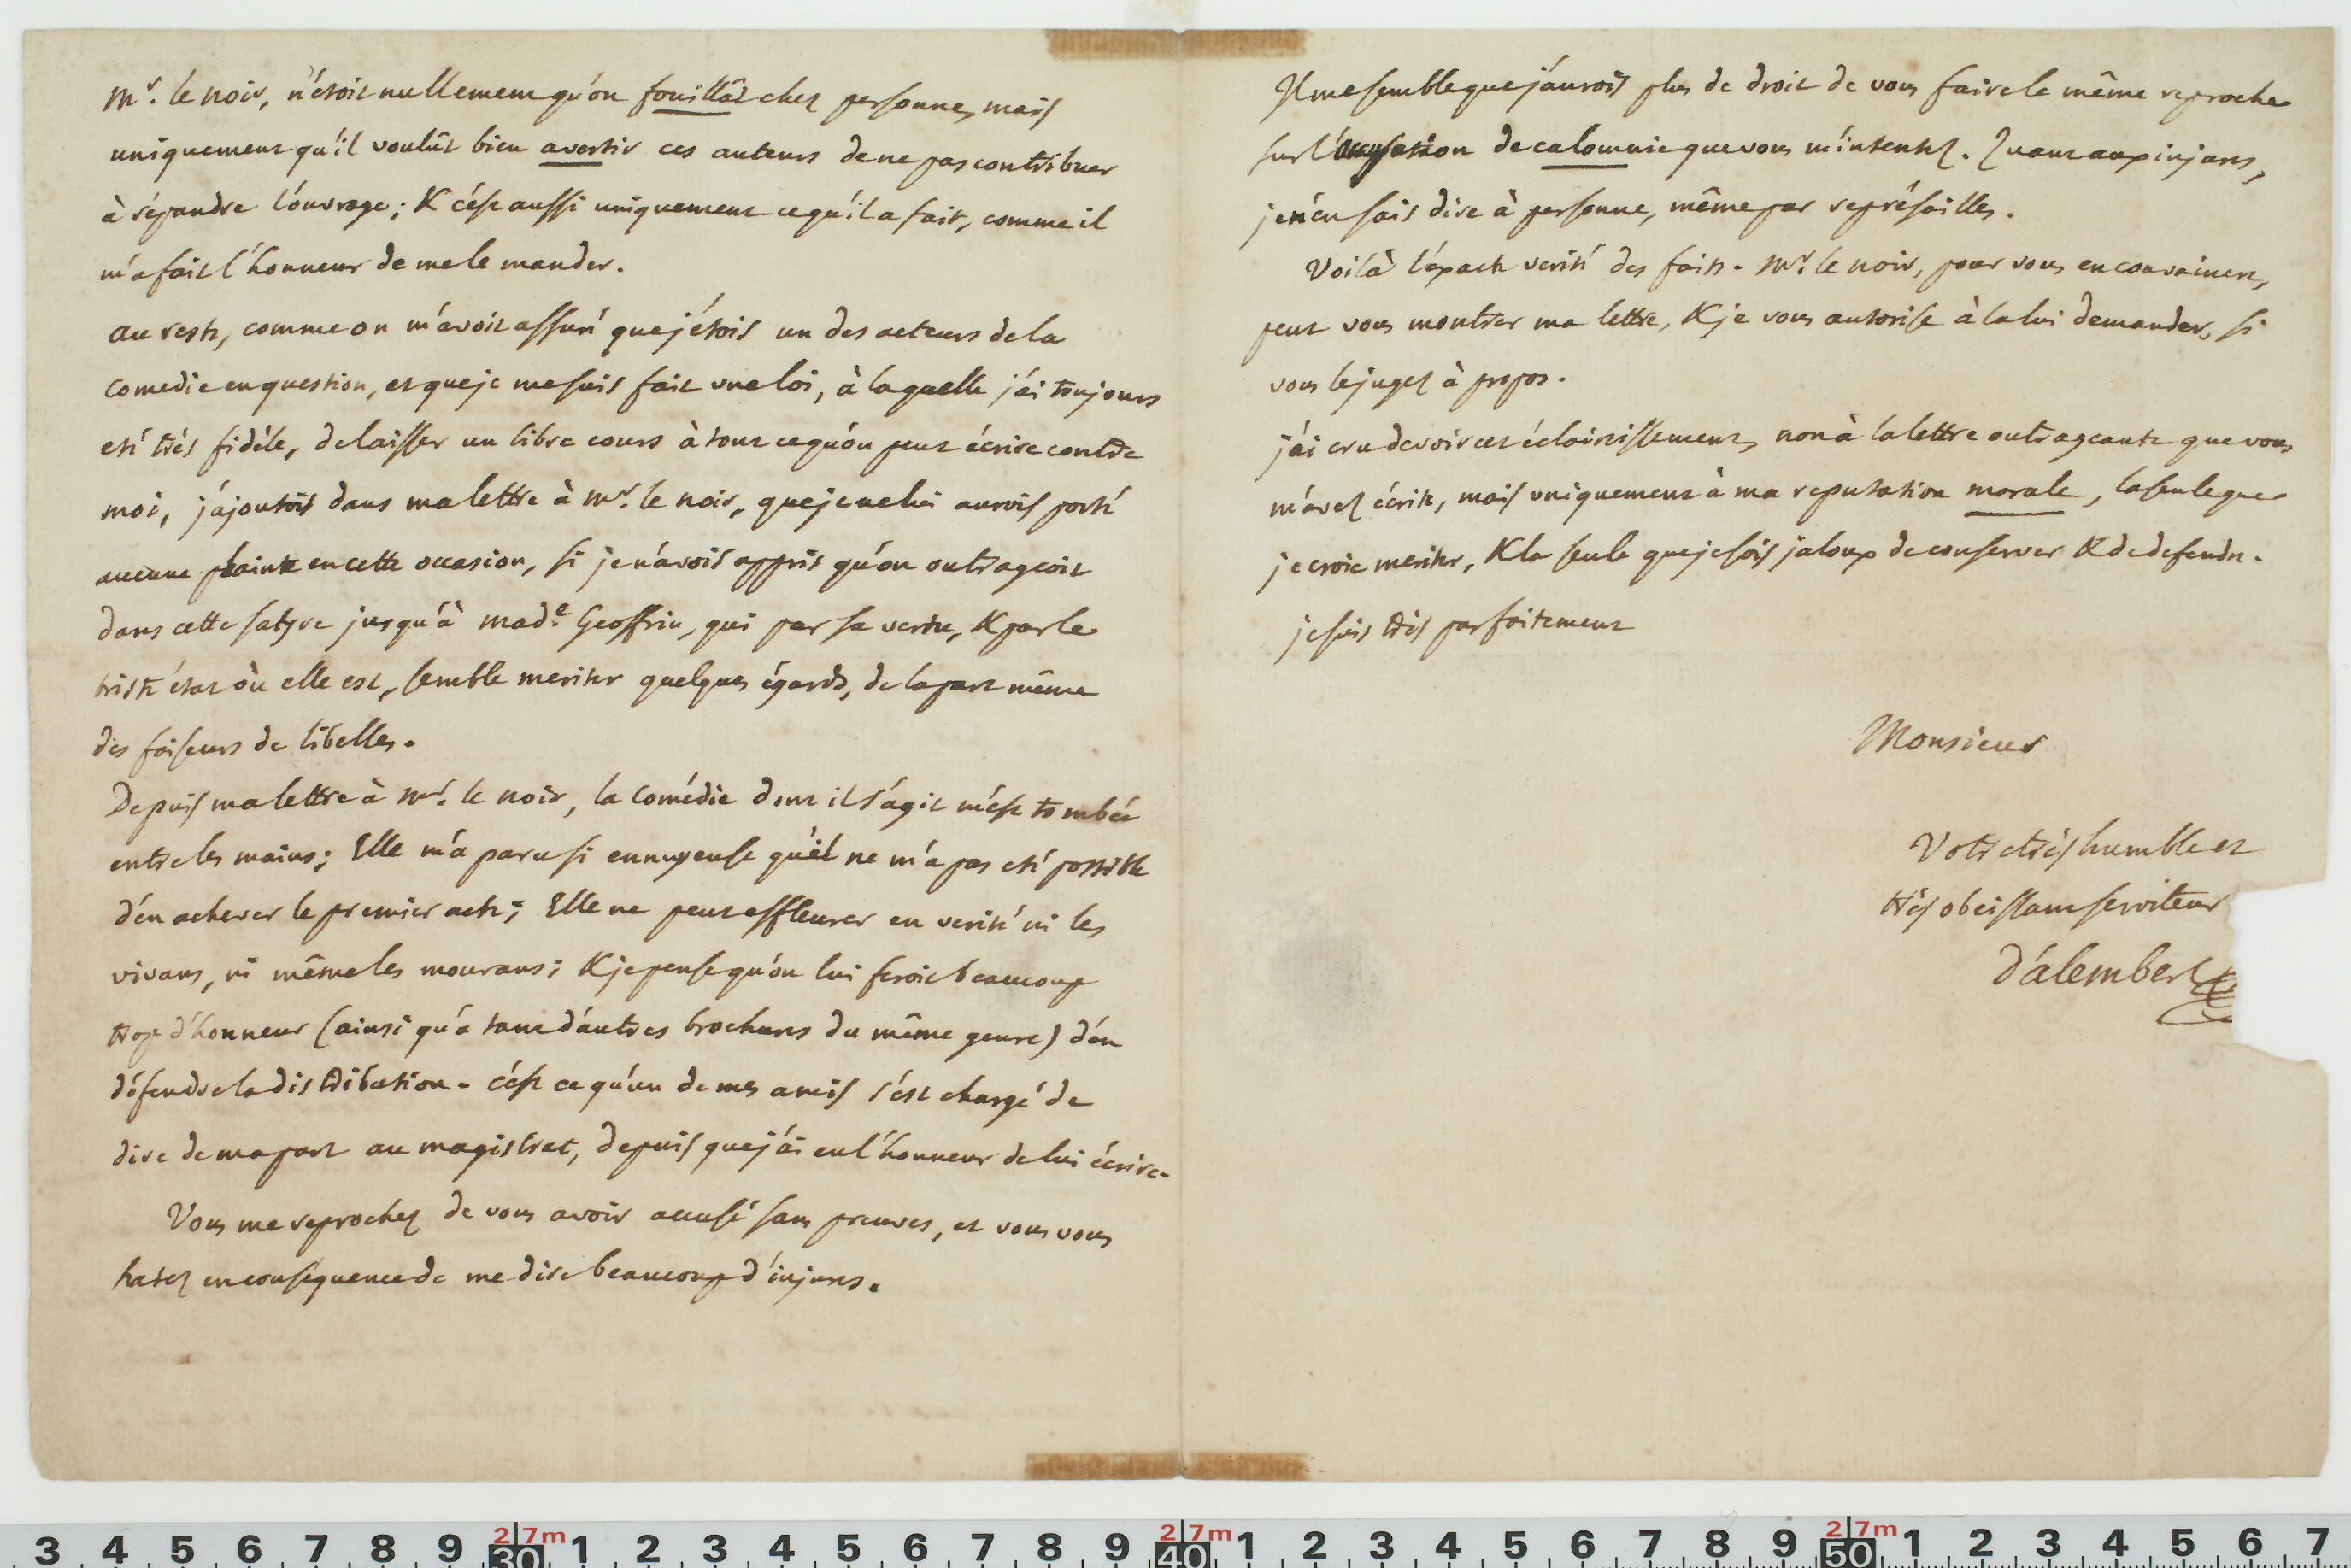 Mr. le noir, n'étoit nullement qu'on fouillât chez personne, mais
uniquement qu'il voulût bien avertir ces auteurs de ne pas contribuer
à répandre l'ouvrage; & c'est aussi uniquement ce qu'il a fait, comme il
m'a fait l'honneur de me le mander.
au reste, comme on m'avoit assuré que j'étois un des acteurs de la
comedie en question, et que je me suis fait une loi, à laquelle j'ai toujours
eté très fidéle, de laisser un libre cours à tout ce qu'on peut écrire contre
moi, j'ajoutois dans ma lettre à Mr. le noir, que je ne lui aurois porté
aucune plainte en cette occasion, si je n'avois appris qu'on outrageoit
dans cette satyre jusqu'à made. Geoffrin, qui par sa vertu, & par le
triste état où elle est, semble meriter quelques égards, de la part même
des faiseurs de libelles.
Depuis ma lettre à Mr. le noir, la comédie dont il s'agit m'est tombée
entre les mains; Elle m'a paru si ennuyeuse qu'il ne m'a pas eté possible
d'en achever le premier acte; Elle ne peut effleurer en verité ni les
vivans, ni même les mourans; & je pense qu'on lui feroit beaucoup
trop d'honneur (ainsi qu'a tant d'autres brochures du même genre) d'en
défendre la distribution. c'est ce qu'un de mes amis s'est chargé de
dire de ma part au magistrat, depuis que j'ai eu l'honneur de lui écrire.
Vous me reprochez de vous avoir accusé sans preuves, et vous vous
hatez en conséquence de me dire beaucoup d'injures.
Il me semble que j'aurois plus de droit de vous faire le même reproche
sur l'accusation de calomnie que vous m'intentez. Quant aux injures,
je n'en sais dire à personne, même par représailles.
Voilà l'exacte verité des faits. Mr. le noir, pour vous en convaincre,
peut vous montrer ma lettre, & je vous autorise à la lui demander, si
vous le jugez à propos.
j'ai cru devoir cet éclaircissement, non à la lettre outrageante que vous
m'avez écrite, mais uniquement à ma reputation morale, la seule que
je croie meriter, & la seule que je sois jaloux de conserver & de defendre.
je suis très parfaitement
Monsieur
Votre très humble et
très obeissant serviteur
D'alembert
3 4 5 6 7 8 9 2 7m 30 1 2 3 4 5 6 7 8 9 2 7m 40 1 2 3 4 5 6 7 8 9 2 7m 50 1 2 3 4 5 6 7